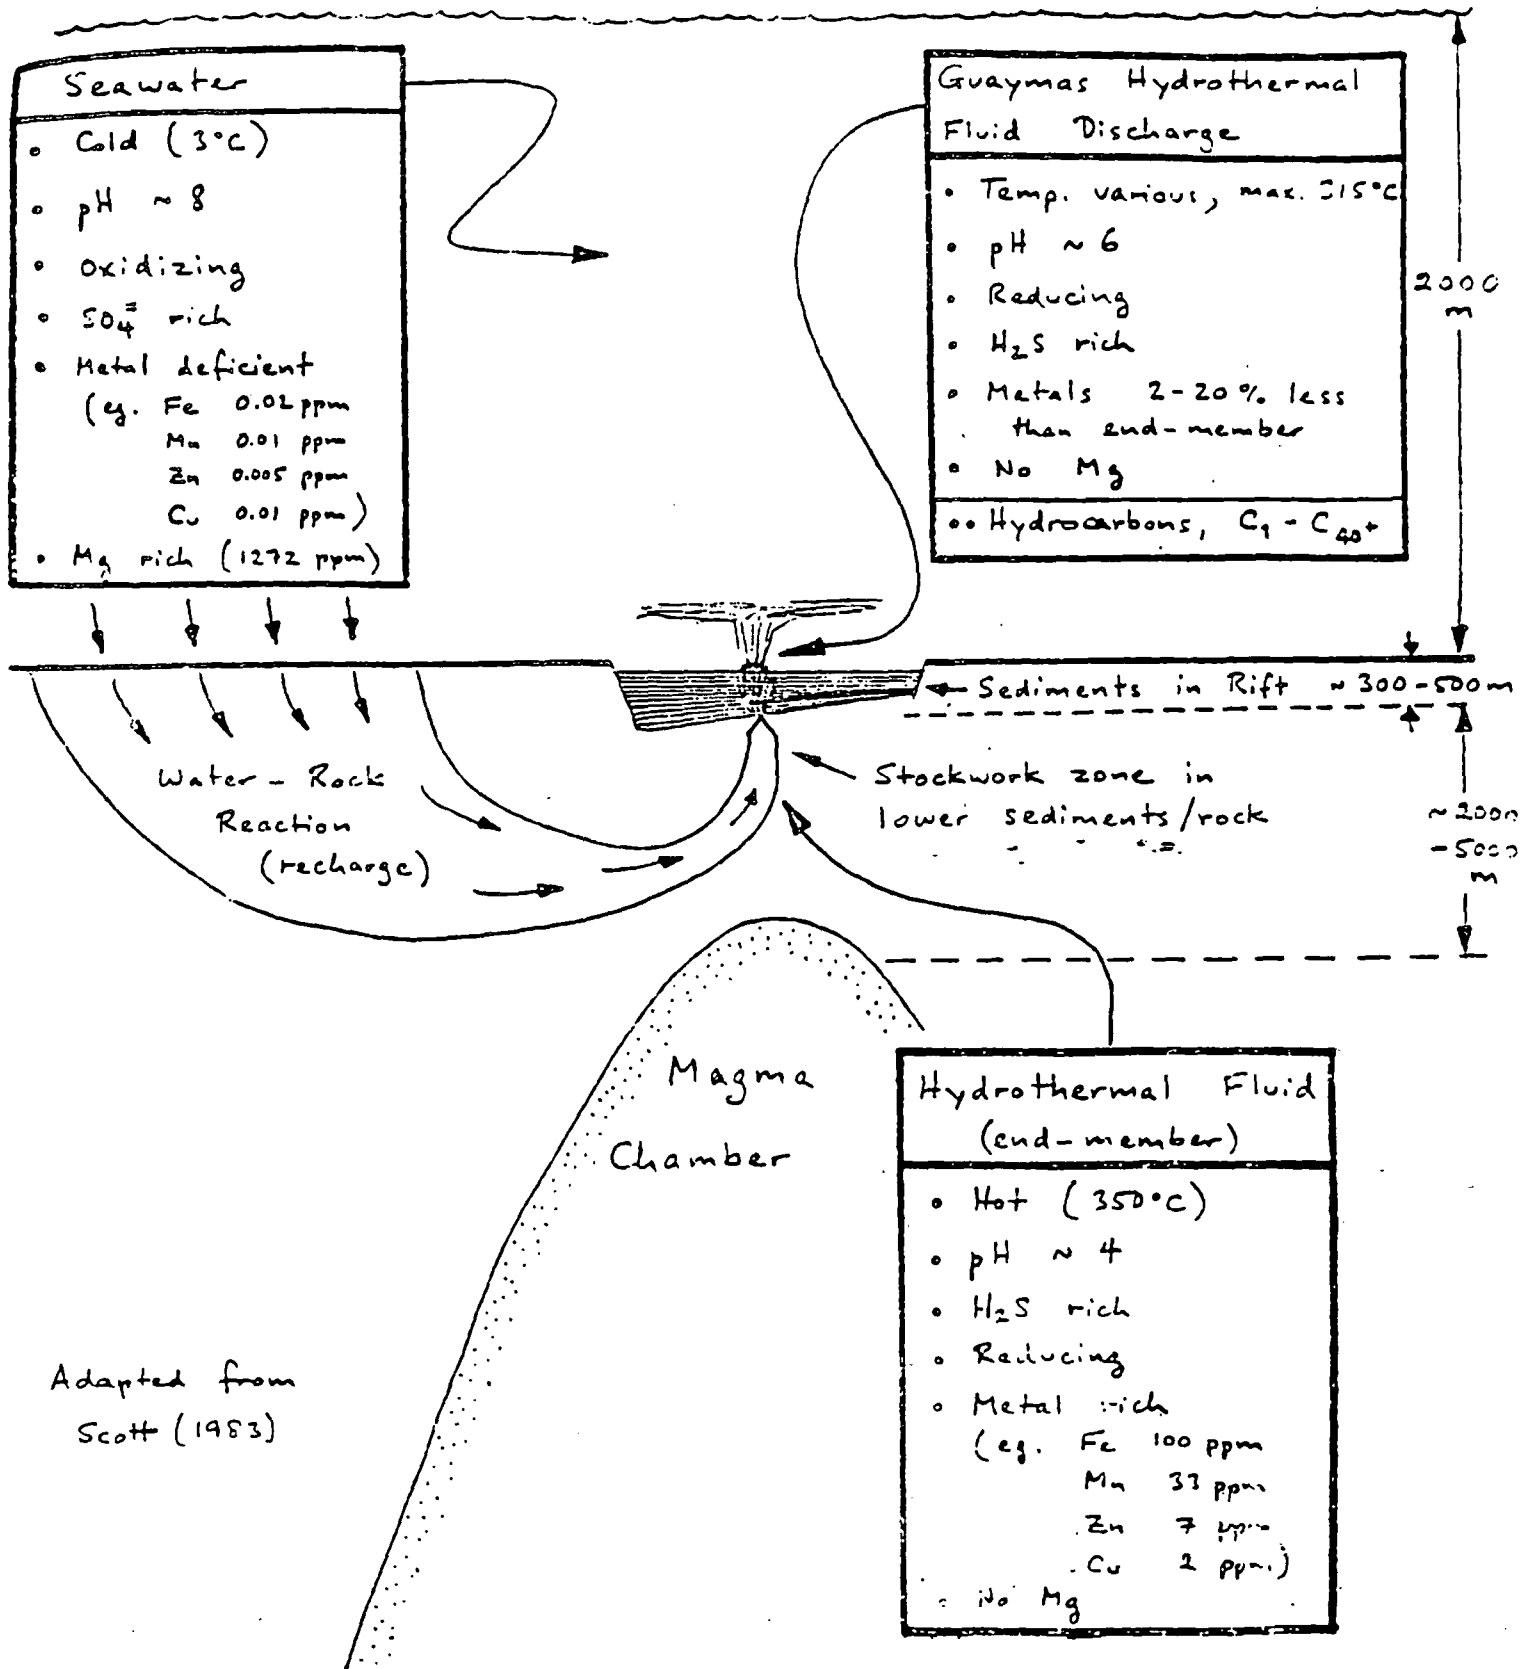 Seawater
• Cold (3°C)
• pH ~ 8
• Oxidizing
• SO₄⁼ rich
• Metal deficient
(eg. Fe 0.02 ppm
Mn 0.01 ppm
Zn 0.005 ppm
Cu 0.01 ppm)
• Mg rich (1272 ppm)
Guaymas Hydrothermal
Fluid Discharge
• Temp. various, max. 315°C
• pH ~ 6
• Reducing
• H₂S rich
• Metals 2-20% less
than end-member
• No Mg
•• Hydrocarbons, C₁ - C₄₀+
2000
m
Sediments in Rift ~ 300-500m
Water - Rock
Reaction
(recharge)
Stockwork zone in
lower sediments/rock
~2000
-5000
m
Magma
Chamber
Hydrothermal Fluid
(end-member)
• Hot (350°C)
• pH ~ 4
• H₂S rich
• Reducing
• Metal rich
(eg. Fe 100 ppm
Mn 33 ppm
Zn 7 ppm
Cu 2 ppm)
• No Mg
Adapted from
Scott (1983)